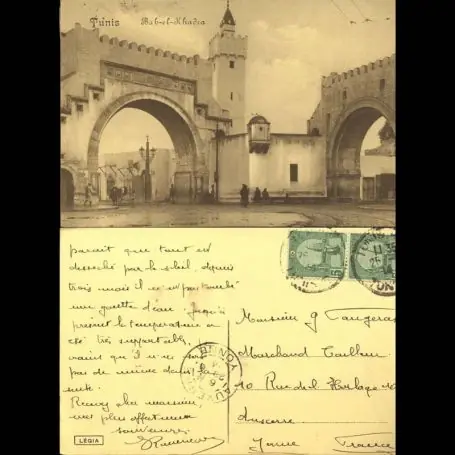 Tunis Bab-el-Khadra
parait que tout est
desséché par le soleil, depuis
trois mois il n'est pas tombé
une goutte d'eau. jusqu'à
présent la température a
été très supportable,
vrains qu'il n'en soit
pas de même dans la
suite.
Recevez cher monsieur
mes plus affectueux
souvenirs.
LÉGIA
Monsieur G
Marchand Tailleur
10 Rue de l'Horloge 10
Auxerre
Yonne France
AUXERRE
YONNE
5
5